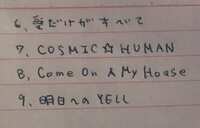 6、愛だけがすべて
7、COSMIC☆HUMAN
8、Come On A My House
9、明日へのYELL